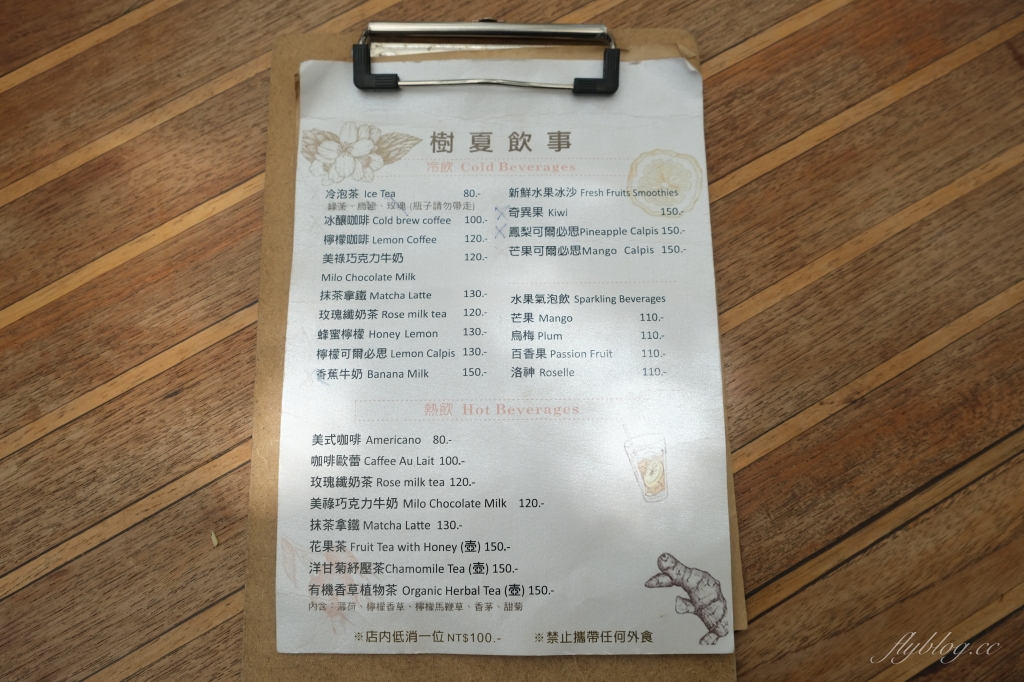 樹夏飲事
冷飲 Cold Beverages
冷泡茶 Ice Tea 80.-
綠茶、烏龍、玫瑰 (瓶子請勿帶走)
冰釀咖啡 Cold brew coffee 100.-
檸檬咖啡 Lemon Coffee 120.-
美祿巧克力牛奶 120.-
Milo Chocolate Milk
抹茶拿鐵 Matcha Latte 130.-
玫瑰纖奶茶 Rose milk tea 120.-
蜂蜜檸檬 Honey Lemon 130.-
檸檬可爾必思 Lemon Calpis 130.-
香蕉牛奶 Banana Milk 150.-
新鮮水果冰沙 Fresh Fruits Smoothies
奇異果 Kiwi 150.-
鳳梨可爾必思Pineapple Calpis 150.-
芒果可爾必思Mango Calpis 150.-
水果氣泡飲 Sparkling Beverages
芒果 Mango 110.-
烏梅 Plum 110.-
百香果 Passion Fruit 110.-
洛神 Roselle 110.-
熱飲 Hot Beverages
美式咖啡 Americano 80.-
咖啡歐蕾 Caffee Au Lait 100.-
玫瑰纖奶茶 Rose milk tea 120.-
美祿巧克力牛奶 Milo Chocolate Milk 120.-
抹茶拿鐵 Matcha Latte 130.-
花果茶 Fruit Tea with Honey (壺) 150.-
洋甘菊紓壓茶Chamomile Tea (壺) 150.-
有機香草植物茶 Organic Herbal Tea (壺) 150.-
內含：薄荷、檸檬香草、檸檬馬鞭草、香茅、甜菊
※店內低消一位 NT$100.- ※禁止攜帶任何外食
flyblog.cc